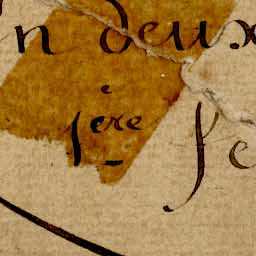 n deux
1ere Se